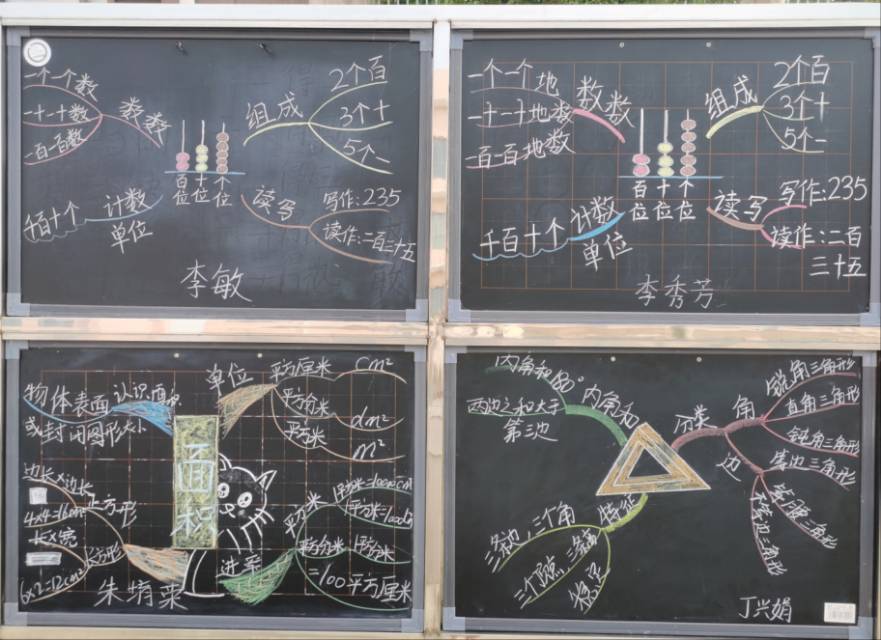 一个一个数
一十一十数
一百一百数
数数
组成
2个百
3个十
5个一
百位
十位
个位
千百十个
计数
单位
读写
写作:235
读作:二百三十五
李敏
一个一个地
一十一十地数
一百一百地数
数数
组成
2个百
3个十
5个一
百位
十位
个位
千百十个
计数
单位
读写
写作:235
读作:二百
三十五
李秀芳
物体表面
或封闭图形大小
认识面积
单位
平方厘米
cm²
平方分米
dm²
平方米
m²
面积
边长×边长
正方形
长×宽
长方形
进率
平方米
平方分米
1平方分米
=100平方厘米
内角和180°
内角和
两边之和大于
第三边
分类
角
锐角三角形
直角三角形
钝角三角形
边
等边三角形
等腰三角形
不等边三角形
特征
三条边,三个角
三个顶点,三条高
稳定
丁兴娟